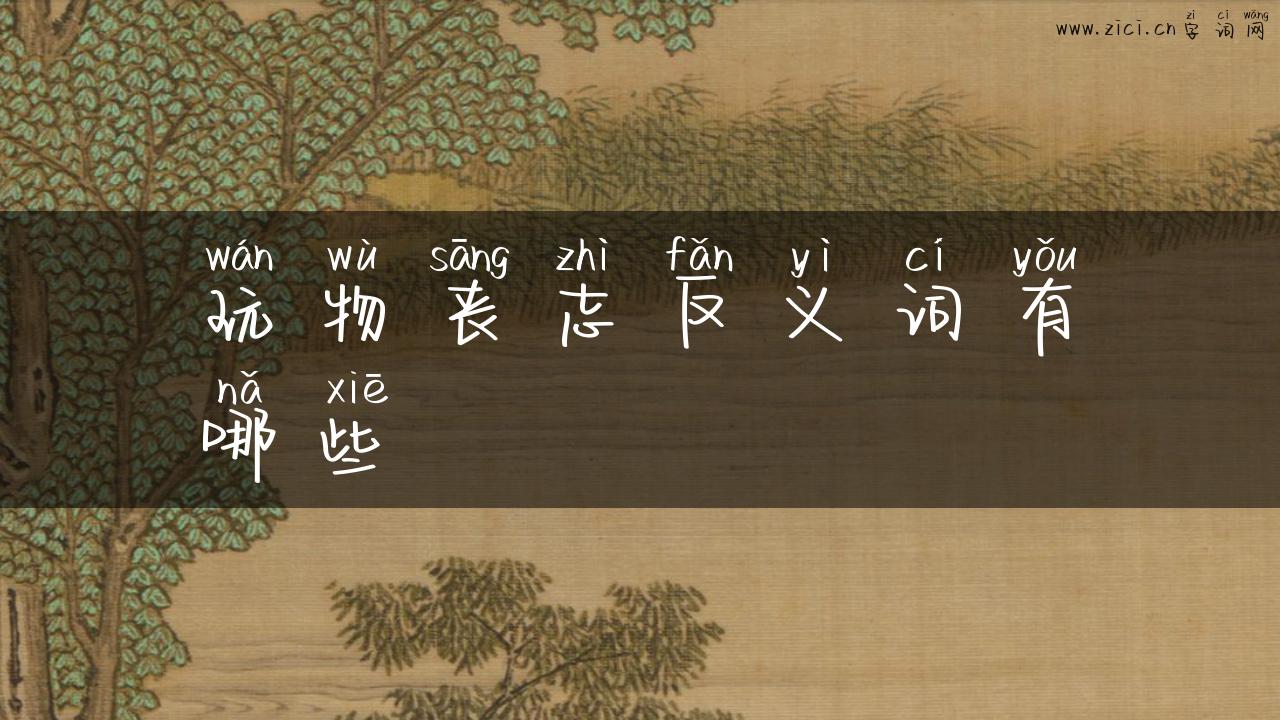 zì cí wǎng
www.zici.cn字词网
wán wù sāng zhì fǎn yì cí yǒu
玩物丧志反义词有
nǎ xiē
哪些